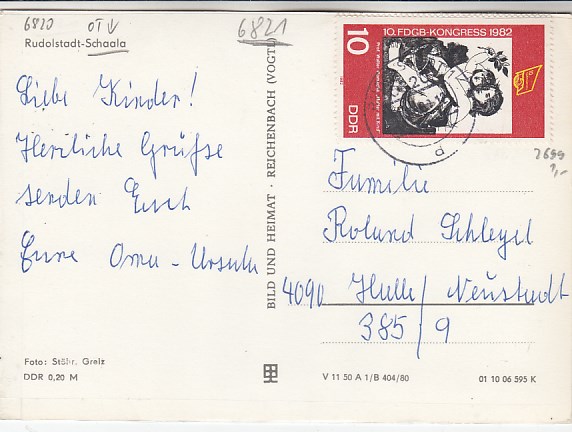 6820 OTV
6821
Rudolstadt-Schaala
Liebe Kinder!
Herzliche Grüsse
senden Euch
Eure Oma - Ursula
Foto: Stöhr, Greiz
DDR 0,20 M
BILD UND HEIMAT · REICHENBACH (VOGTL)
10. FDGB-KONGRESS 1982
10
DDR
2699
1,-
Familie
Roland Schlegel
4090 Halle/Neustadt
385/9
V 11 50 A 1/B 404/80
01 10 06 595 K